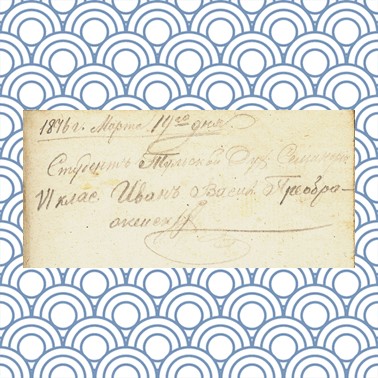 1876 г. Марта 17го дня
Студентъ Тульской Дух. Семинаріи
VI клас. Иванъ Васил. Преобра-
женскій